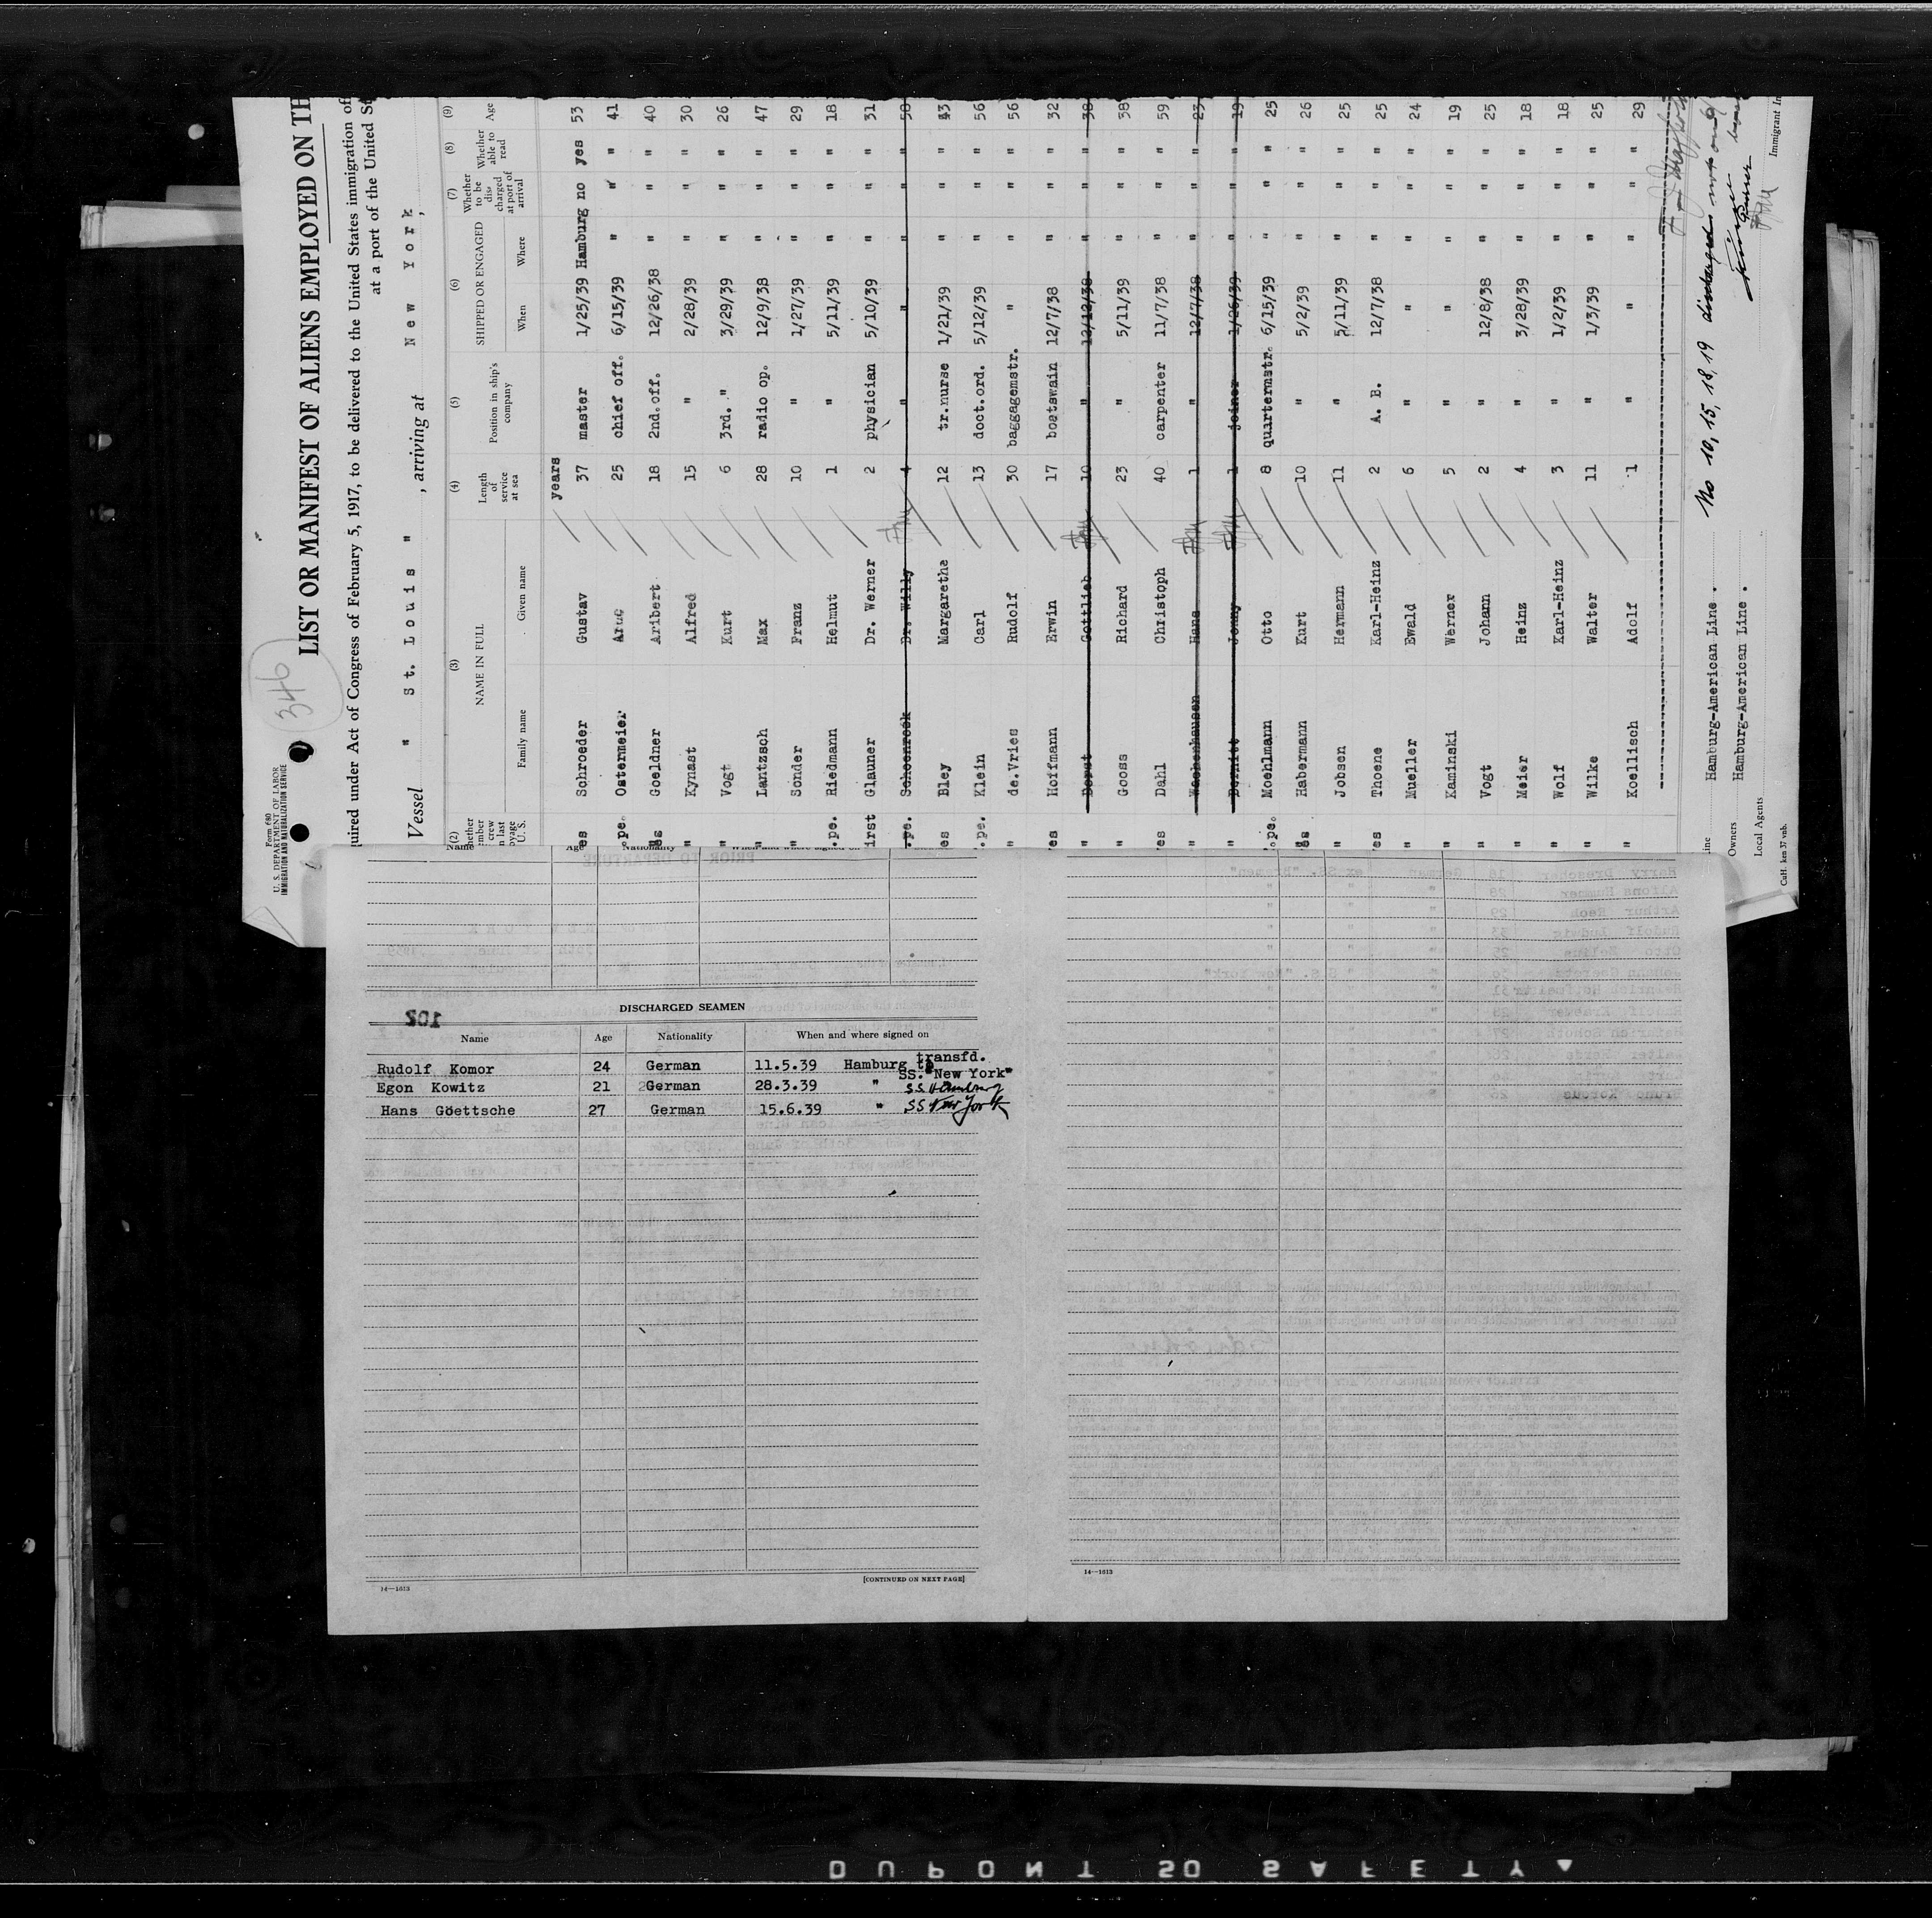 346
Form 680
U. S. DEPARTMENT OF LABOR
IMMIGRATION AND NATURALIZATION SERVICE
LIST OR MANIFEST OF ALIENS EMPLOYED ON TH
quired under Act of Congress of February 5, 1917, to be delivered to the United States immigration of
at a port of the United St
Vessel " St. Louis " , arriving at New York ,
(2) (3) (4) (5) (6) (7) (8) (9)
NAME IN FULL Length of service at sea Position in ship's company SHIPPED OR ENGAGED Whether to be discharged at port of arrival Whether able to read Age
Family name Given name When Where
years
es Schroeder Gustav 37 master 1/25/39 Hamburg no yes 53
.pe. Ostermeier 25 chief off. 6/15/39 " " " 41
es Goeldner Aribert 18 2nd.off. 12/26/38 " " " 40
" Kynast Alfred 15 " 2/28/39 " " " 30
" Vogt Kurt 6 3rd. " 3/29/39 " " " 26
" Lantzsch Max 28 radio op. 12/9/38 " " " 47
" Sonder Franz 10 " 1/27/39 " " " 29
.pe. Riedmann Helmut 1 " 5/11/39 " " " 18
irst Glauner Dr. Werner 2 physician 5/10/39 " " " 31
.pe. Schoenrock Dr. Willy 4 " " " " " 58
es Bley Margarethe 12 tr.nurse 1/21/39 " " " 43
.pe. Klein Carl 13 doct.ord. 5/12/39 " " " 56
" de.Vries Rudolf 30 baggagemstr. " " " " 56
es Hoffmann Erwin 17 boatswain 12/7/38 " " " 32
" Borst Gottlieb 10 " 12/12/38 " " " 38
" Gooss Richard 23 " 5/11/39 " " " 38
es Dahl Christoph 40 carpenter 11/7/38 " " " 59
" Wachenhausen Hans 1 " 12/7/38 " " " 23
" Bernitt Jonny 1 joiner 1/26/39 " " " 19
.pe. Moehlmann Otto 8 quartermstr. 6/15/39 " " " 25
es Habermann Kurt 10 " 5/2/39 " " " 26
" Jobsen Hermann 11 " 5/11/39 " " " 25
es Thoene Karl-Heinz 2 A. B. 12/7/38 " " " 25
" Mueller Ewald 6 " " " " " 24
" Kaminski Werner 5 " " " " " 19
" Vogt Johann 2 " 12/8/38 " " " 25
" Meier Heinz 4 " 3/28/39 " " " 18
" Wolf Karl-Heinz 3 " 1/2/39 " " " 18
" Wilke Walter 11 " 1/3/39 " " " 25
" Koellisch Adolf 1 " " " " " 29
No 10, 15, 18, 19 discharged not on
Line Hamburg-American Line .
Owners Hamburg-American Line .
Local Agents
Immigrant In
CuH. ken 37 vnb.
Name Age Nationality When and where signed on
DISCHARGED SEAMEN
102
Name Age Nationality When and where signed on
Rudolf Komor 24 German 11.5.39 Hamburg transfd. to SS."New York"
Egon Kowitz 21 German 28.3.39 " SS Hamburg
Hans Göettsche 27 German 15.6.39 " SS New York
14—1613
[CONTINUED ON NEXT PAGE]
14—1613
DUPONT 50 SAFETY